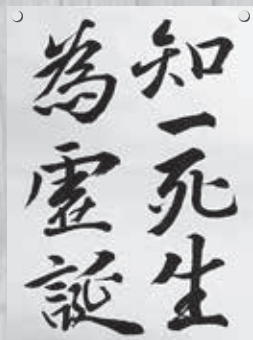 知一死生
為虛誕